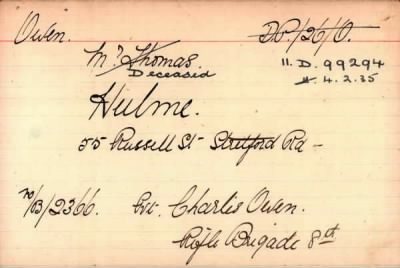 Owen.
D.P./26/O.
Mr Thomas.
Deceased
11. D. 99294
4.2.35
Hulme.
55 Russell St Stretford Rd -
B/2366. Charles Owen.
Rifle Brigade 8th